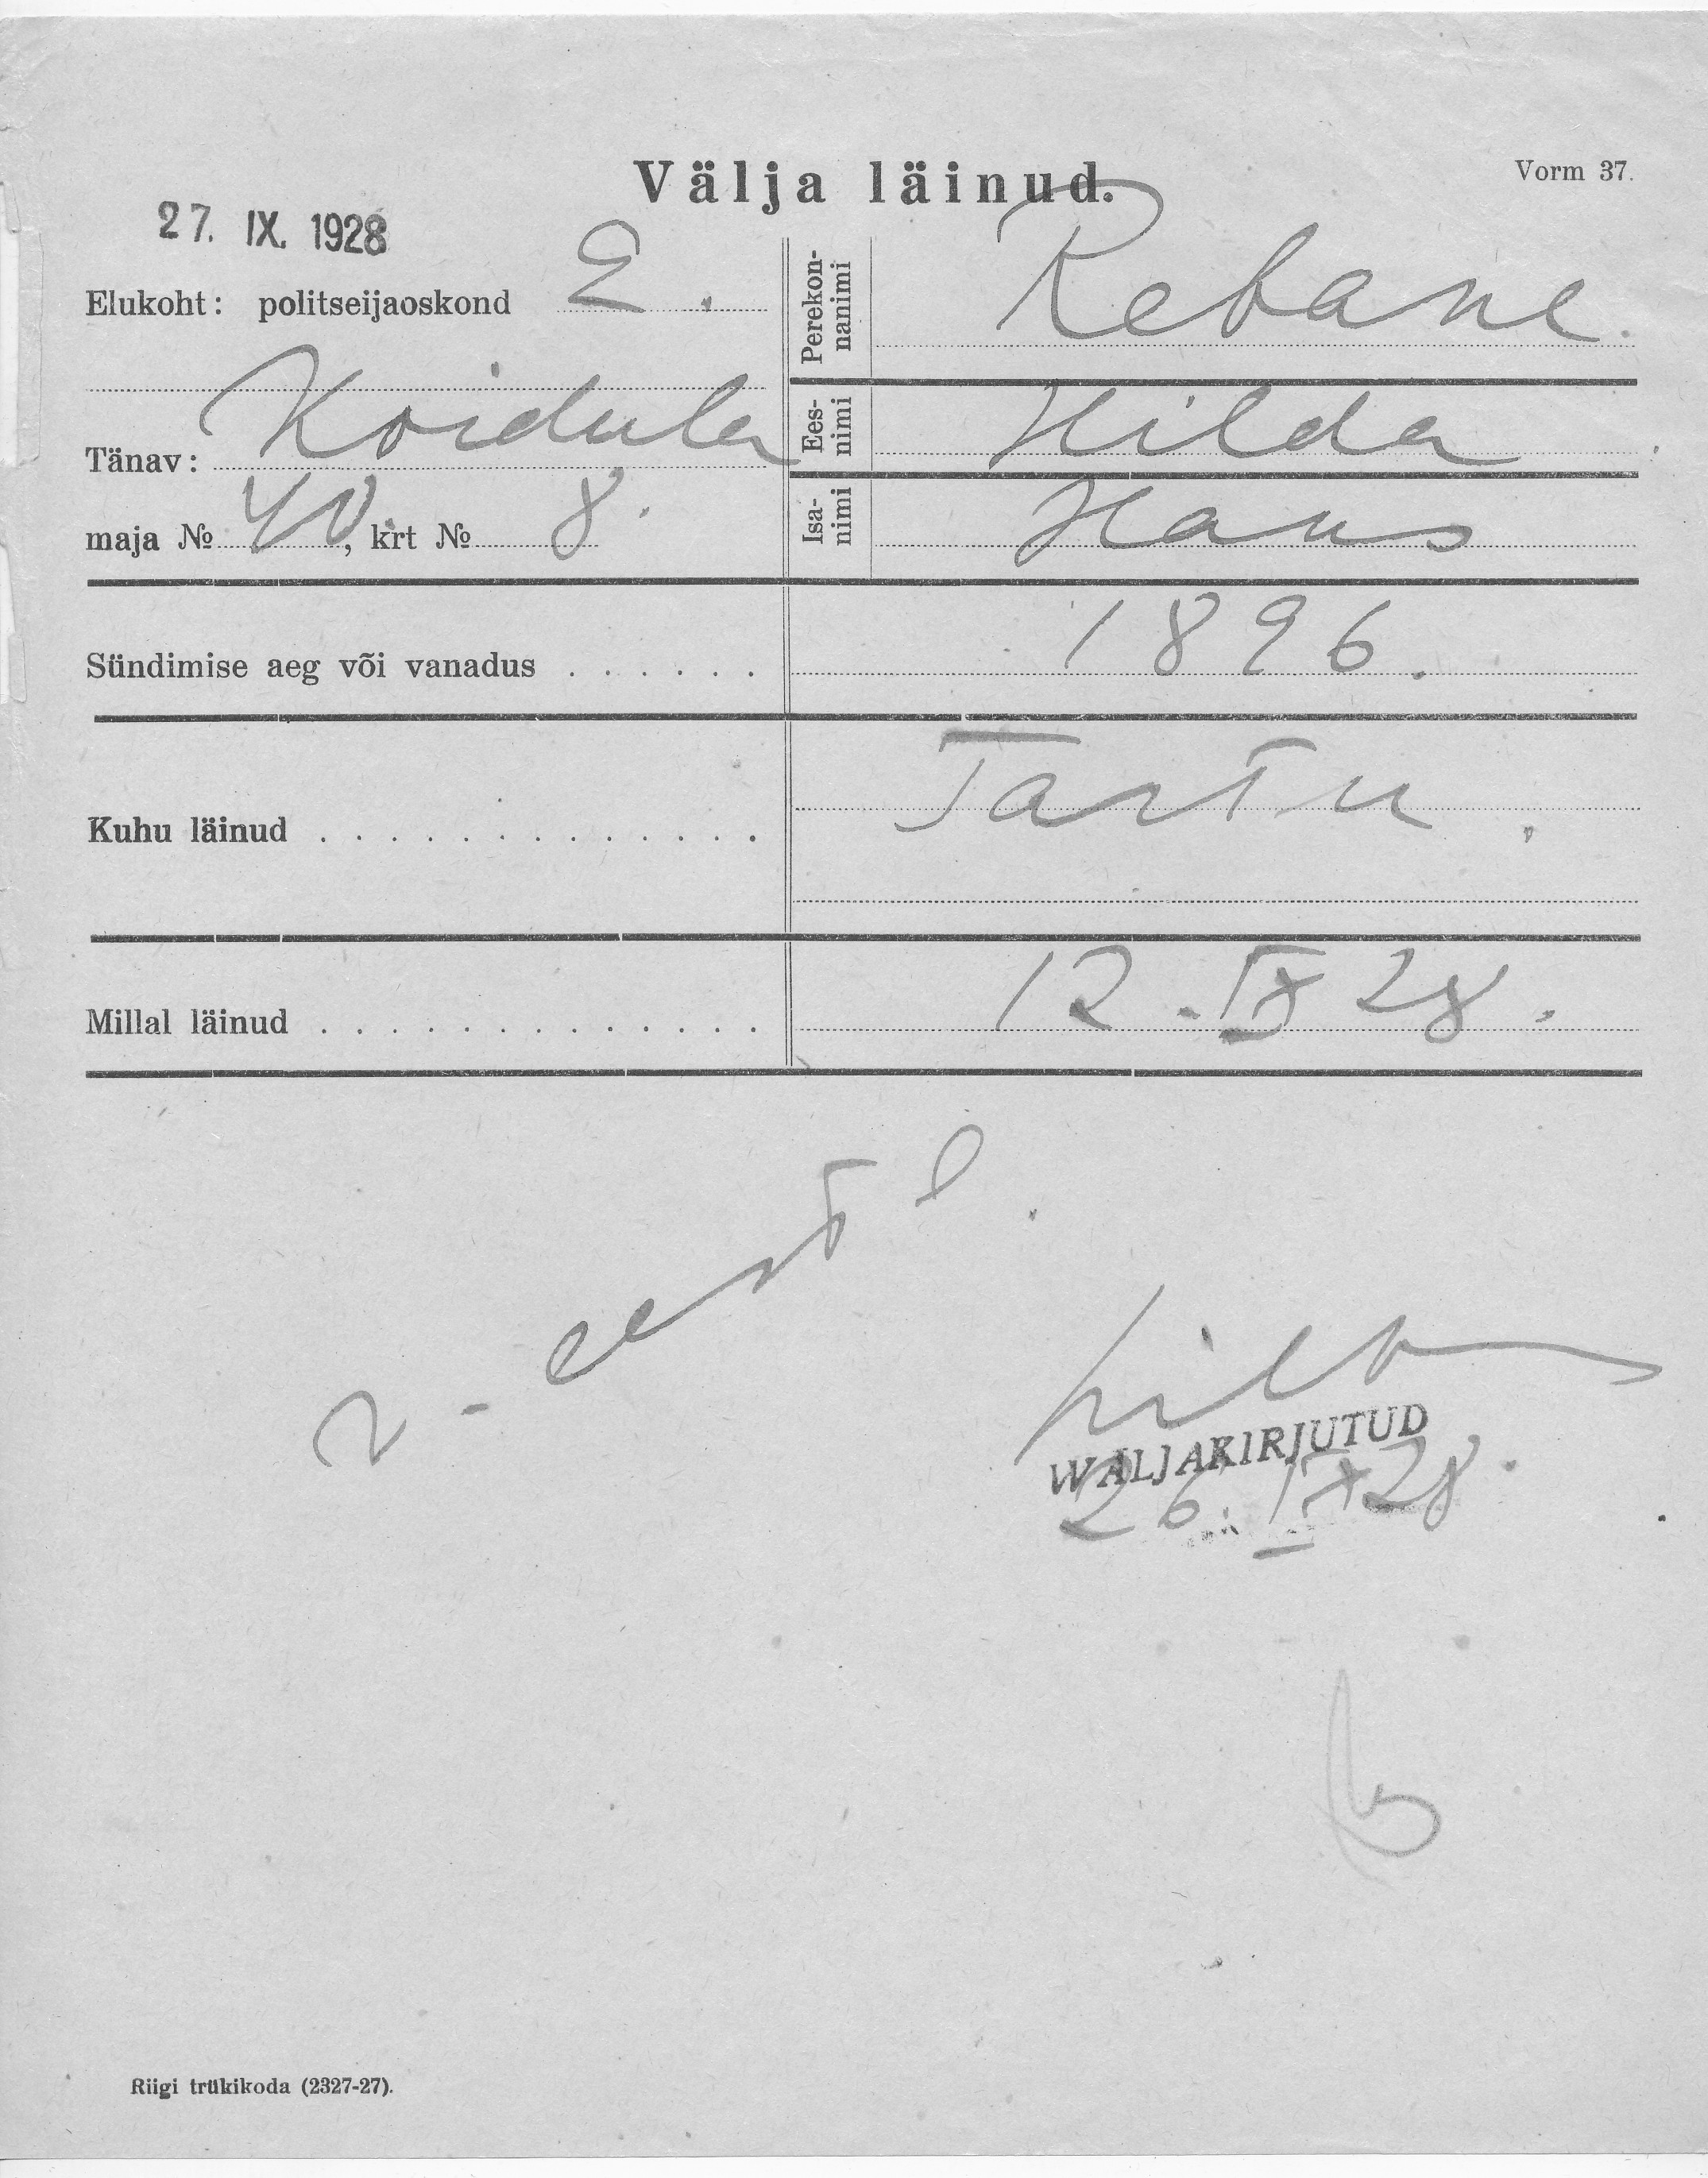 Välja läinud.
Vorm 37.
27. IX. 1928
Elukoht: politseijaoskond 2.
Perekon-
nanimi
Rebane.
Tänav: Koidula
Ees-
nimi
Hilda
maja № 40, krt № 8.
Isa-
nimi
Hans
Sündimise aeg või vanadus . . . . . . 1896.
Kuhu läinud . . . . . . . . . . . . . Tartu.
Millal läinud . . . . . . . . . . . . . 12. IX 28.
WÄLJAKIRJUTUD
26. IX 28.
Riigi trükikoda (2327-27).